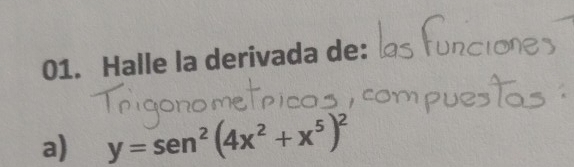 01. Halle la derivada de: las funciones
Trigonometricas, compuestas:
a) y = sen² (4x² + x⁵)²